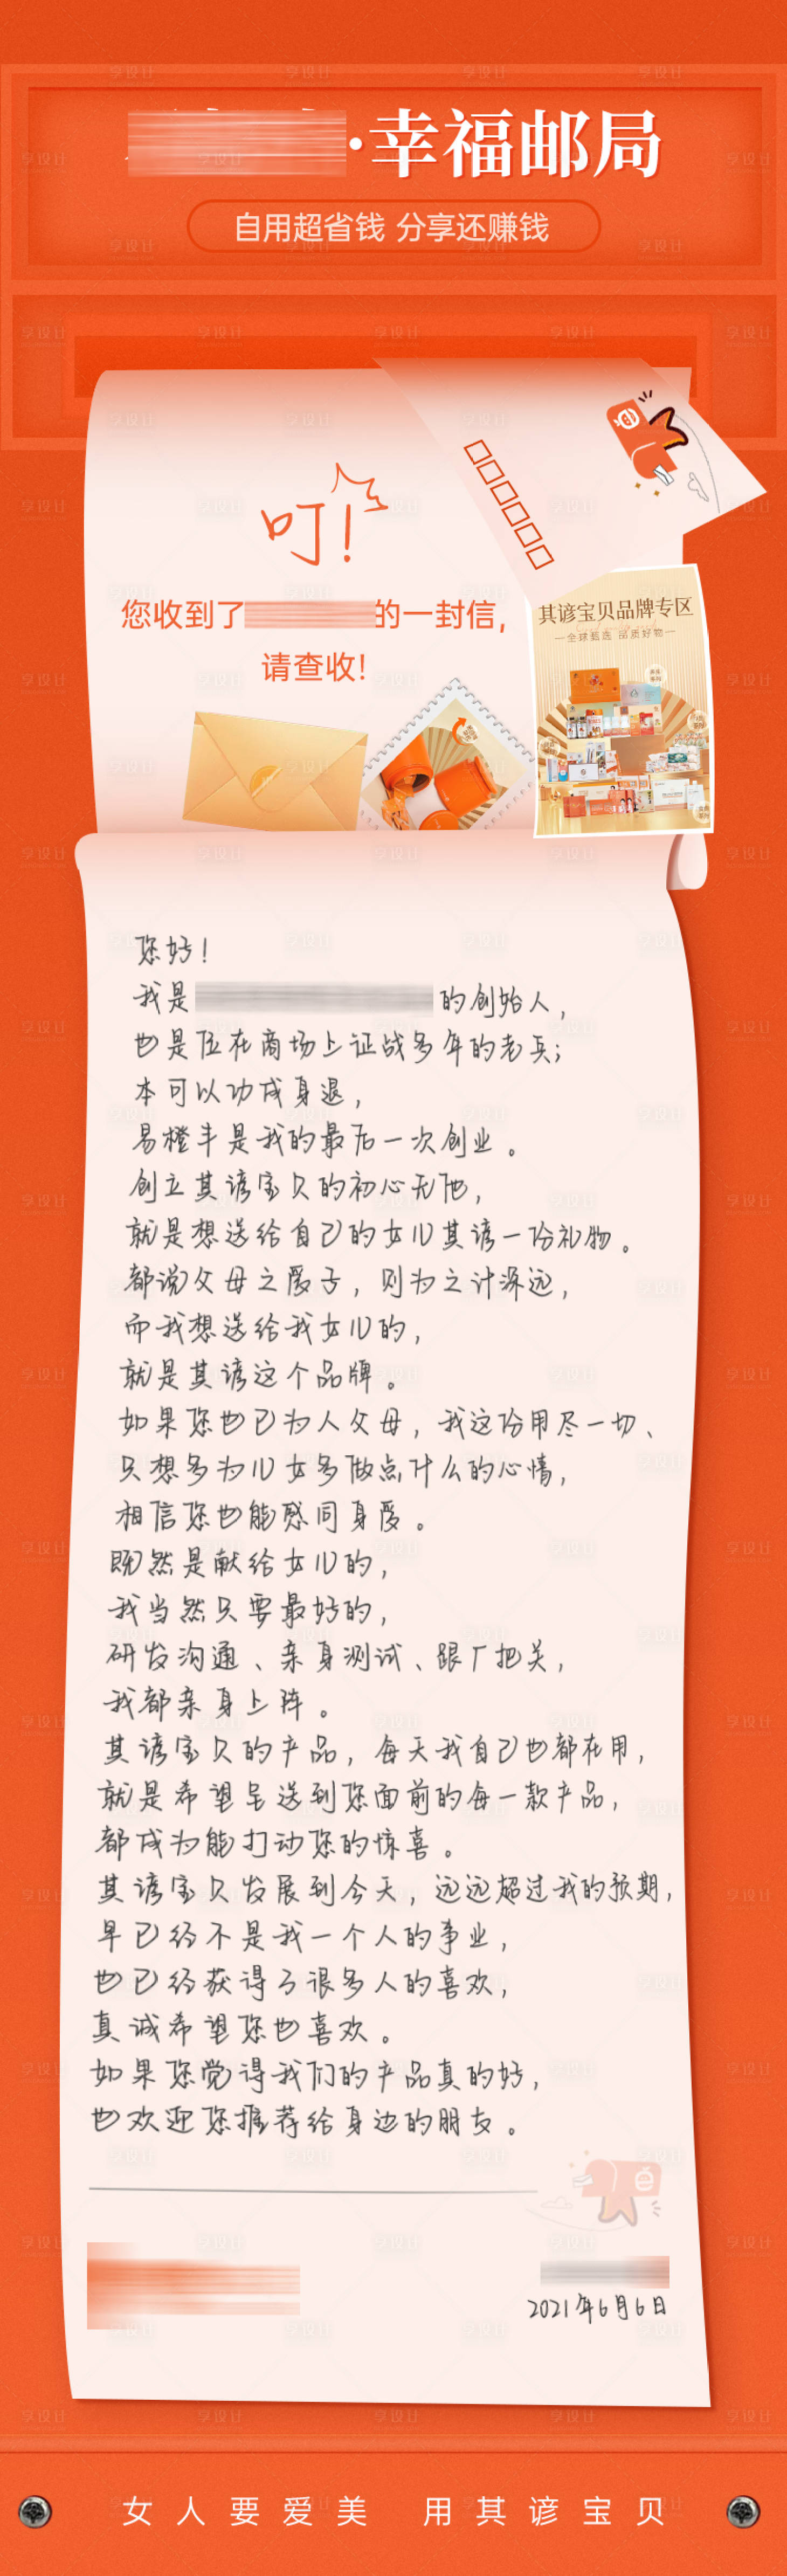 ·幸福邮局
自用超省钱 分享还赚钱
叮!
您收到了 的一封信,
请查收!
其谚宝贝品牌专区
全球甄选 品质好物
您好!
我是 的创始人,
也是位在商场上证战多年的老兵;
本可以功成身退,
易橙丰是我的最后一次创业。
创立其谚宝贝的初心无他,
就是想送给自己的女儿其谚一份礼物。
都说父母之爱子,则为之计深远,
而我想送给我女儿的,
就是其谚这个品牌。
如果您也已为人父母,我这份用尽一切、
只想多为儿女多做点什么的心情,
相信您也能感同身受。
既然是献给女儿的,
我当然只要最好的,
研发沟通、亲身测试、跟厂把关,
我都亲身上阵。
其谚宝贝的产品,每天我自己也都在用,
就是希望呈送到您面前的每一款产品,
都成为能打动您的惊喜。
其谚宝贝发展到今天,远远超过我的预期,
早已经不是我一个人的事业,
也已经获得了很多人的喜欢,
真诚希望您也喜欢。
如果您觉得我们的产品真的好,
也欢迎您推荐给身边的朋友。
2021年6月6日
女人要爱美 用其谚宝贝
享设计